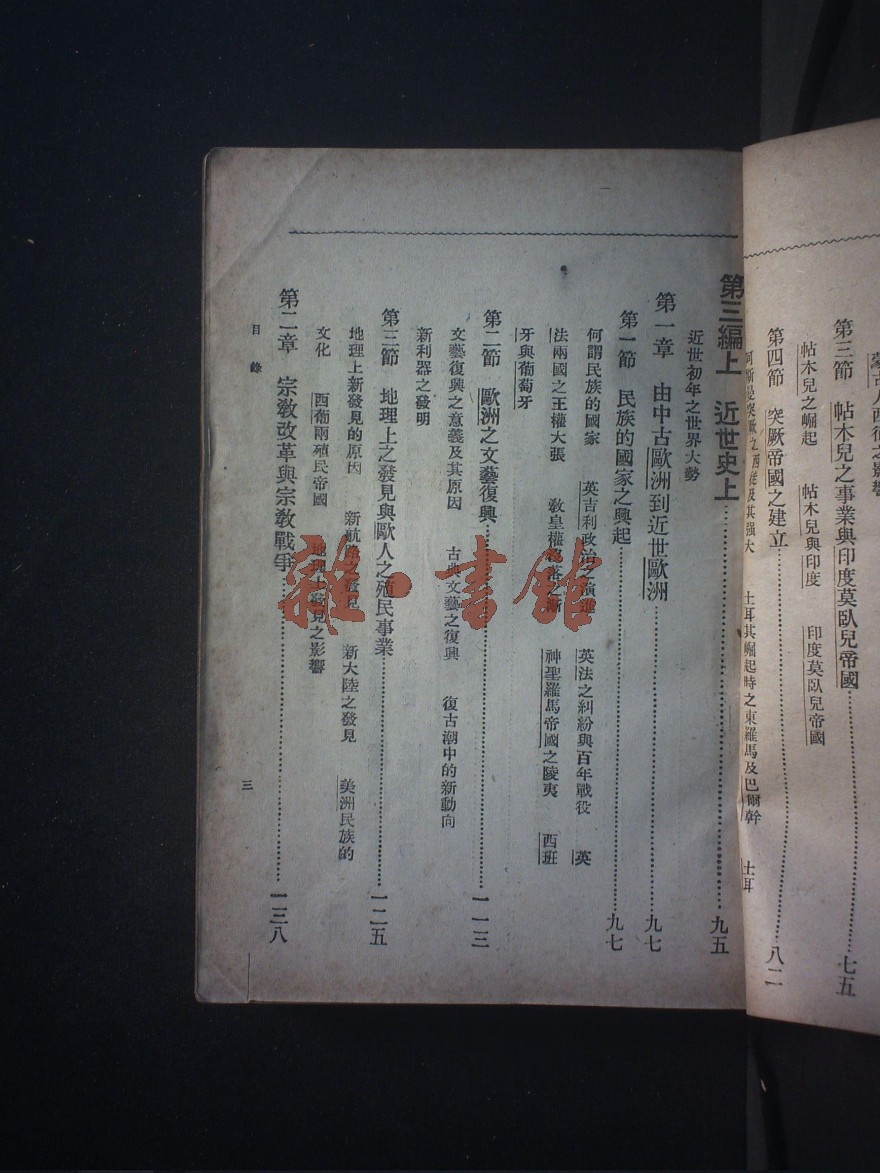 蒙古人西征之影響
第三節　帖木兒之事業與印度莫臥兒帝國……七五
帖木兒之崛起　帖木兒與印度　印度莫臥兒帝國
第四節　突厥帝國之建立……八二
阿斯曼突厥之西徙及其强大　土耳其崛起時之東羅馬及巴爾幹　土耳
第三編上　近世史上……九五
近世初年之世界大勢
第一章　由中古歐洲到近世歐洲……九七
第一節　民族的國家之興起……九七
何謂民族的國家　英吉利政治之演進　英法之糾紛與百年戰役　英
法兩國之王權大張　教皇權墮落之漸　神聖羅馬帝國之陵夷　西班
牙與葡萄牙
第二節　歐洲之文藝復興……一一三
文藝復興之意義及其原因　古典文藝之復興　復古潮中的新動向
新利器之發明
第三節　地理上之發見與歐人之殖民事業……一二五
地理上新發見的原因　新航路之發見　新大陸之發見　美洲民族的
文化　西葡兩殖民帝國　地理上發見之影響
第二章　宗教改革與宗教戰爭……一三八
目錄
三
雜·書館